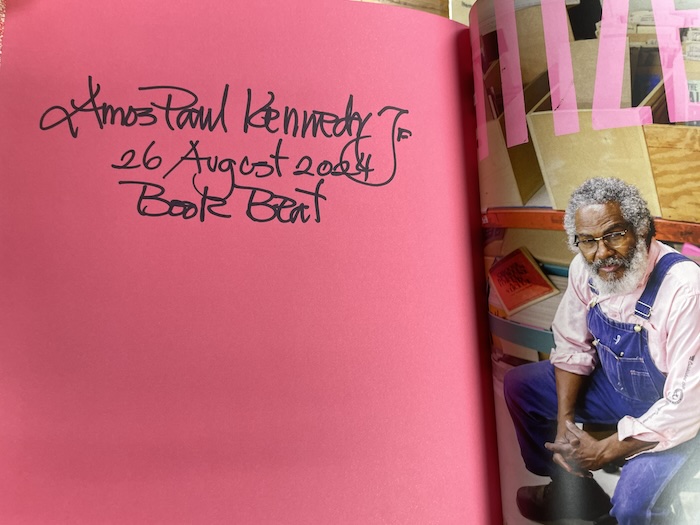 Amos Paul Kennedy Jr
26 August 2024
Book Beat
TIZE